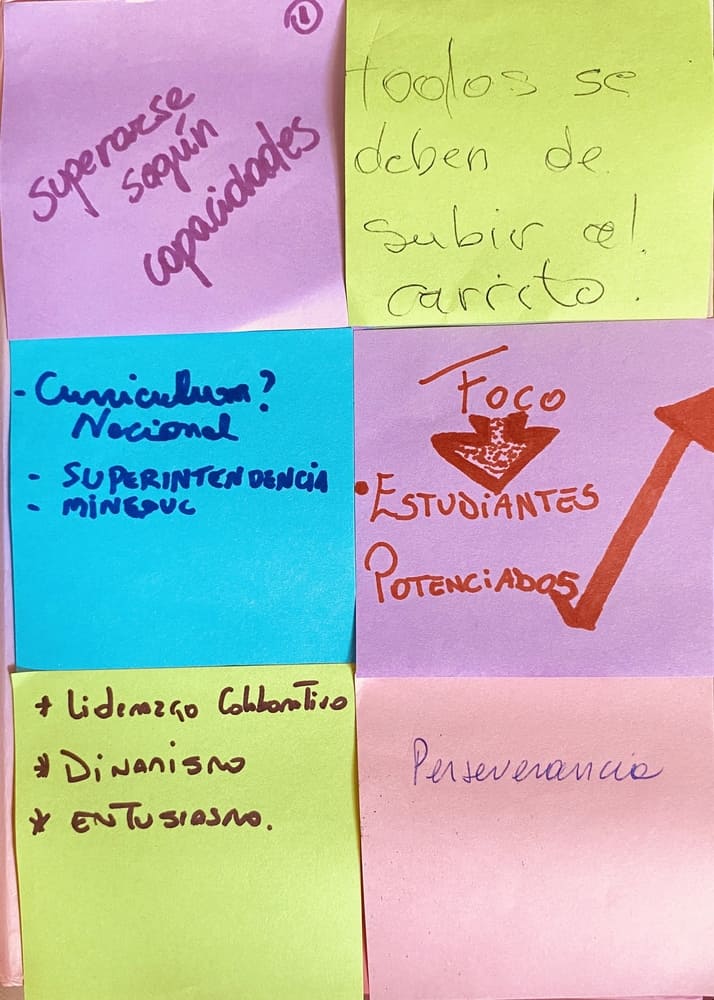 11
superarse
según
capacidades
todos se
deben de
subir al
carrito.
- Curriculum?
Nacional
- SUPERINTENDENCIA
- MINEDUC
FOCO
• ESTUDIANTES
POTENCIADOS
* Liderazgo Colaborativo
* DINAMISMO
* ENTUSIASMO.
Perseverancia